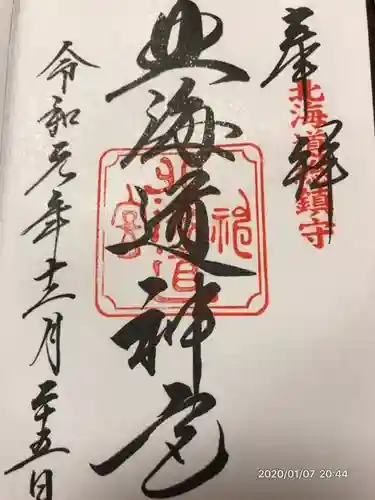 奉拝
北海道総鎮守
北海道神宮
北海道神宮
令和元年十二月二十五日
2020/01/07 20:44